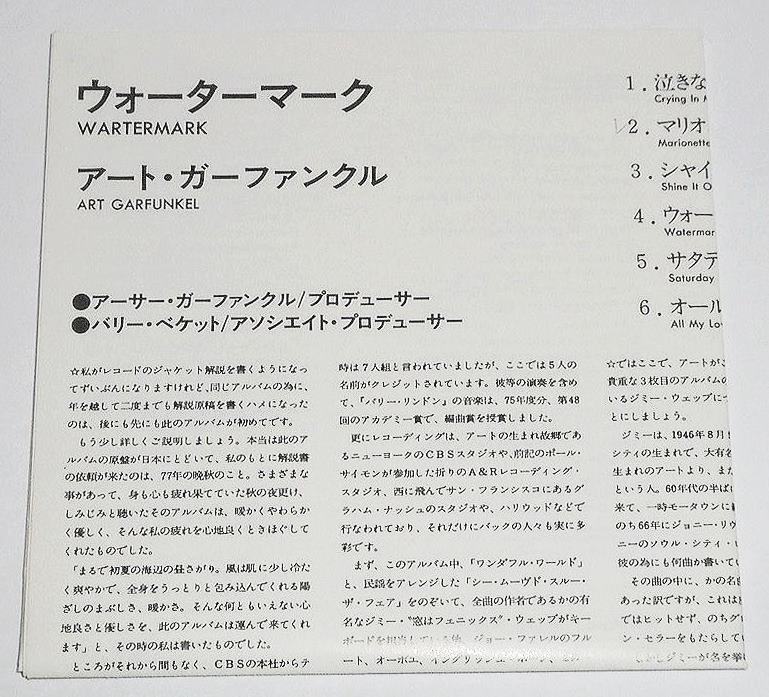 ウォーターマーク
WARTERMARK
アート・ガーファンクル
ART GARFUNKEL
●アーサー・ガーファンクル/プロデューサー
●バリー・ベケット/アソシエイト・プロデューサー
1. 泣きな
Crying In M
2. マリオ
Marionette
3. シャイ
Shine It O
4. ウォー
Watermar
5. サタデ
Saturday
6. オール
All My Lo
☆私がレコードのジャケット解説を書くようになっ
てずいぶんになりますけれど、同じアルバムの為に、
年を越して二度までも解説原稿を書くハメになった
のは、後にも先にも此のアルバムが初めてです。
もう少し詳しくご説明しましょう。本当は此のア
ルバムの原盤が日本にとどいて、私のもとに解説書
の依頼が来たのは、77年の晩秋のこと。さまざまな
事があって、身も心も疲れ果てていた秋の夜更け、
しみじみと聴いたそのアルバムは、暖かくやわらか
く優しく、そんな私の疲れを心地良くときほぐして
くれたものでした。
「まるで初夏の海辺の昼さがり。風は肌に少し冷た
く爽やかで、全身をうっとりと包み込んでくれる陽
ざしのまぶしさ、暖かさ。そんな何ともいえない心
地良さと優しさを、此のアルバムは運んで来てくれ
ます」と、その時の私は書いたものでした。
ところがそれから間もなく、CBSの本社からテ
時は7人組と言われていましたが、ここでは5人の
名前がクレジットされています。彼等の演奏を含め
て、「バリー・リンドン」の音楽は、75年度分、第48
回のアカデミー賞で、編曲賞を授賞しました。
更にレコーディングは、アートの生まれ故郷であ
るニューヨークのCBSスタジオや、前記のポール・
サイモンが参加した折りのA&Rレコーディング・
スタジオ、西に飛んでサン・フランシスコにあるグ
ラハム・ナッシュのスタジオや、ハリウッドなどで
行なわれており、それだけにバックの人々も実に多
彩です。
まず、このアルバム中、「ワンダフル・ワールド」
と、民謡をアレンジした「シー・ムーヴド・スルー・
ザ・フェア」をのぞいて、全曲の作者であるかの有
名なジミー・〝窓はフェニックス〟・ウェッブがキー
ボードを担当している他、ジョー・ファレルのフル
ート、オーボエ、イングリッシュ・ホーン、
☆ではここで、アートがこ
貴重な3枚目のアルバムの
いるジミー・ウェッブにつ
とにしましょう。
ジミーは、1946年8月
シティの生まれで、大有名
生まれのアートより、また
という人。60年代の半ば
来て、一時モータウンに
のち66年にジョニー・リヴ
ニーのソウル・シティ・レ
彼の為にも何曲か書いて
その曲の中に、かの名曲
あった訳ですが、これは
ではヒットせず、のちグ
ン・セラーをもたらしてい
しかしジミーが名を挙げ